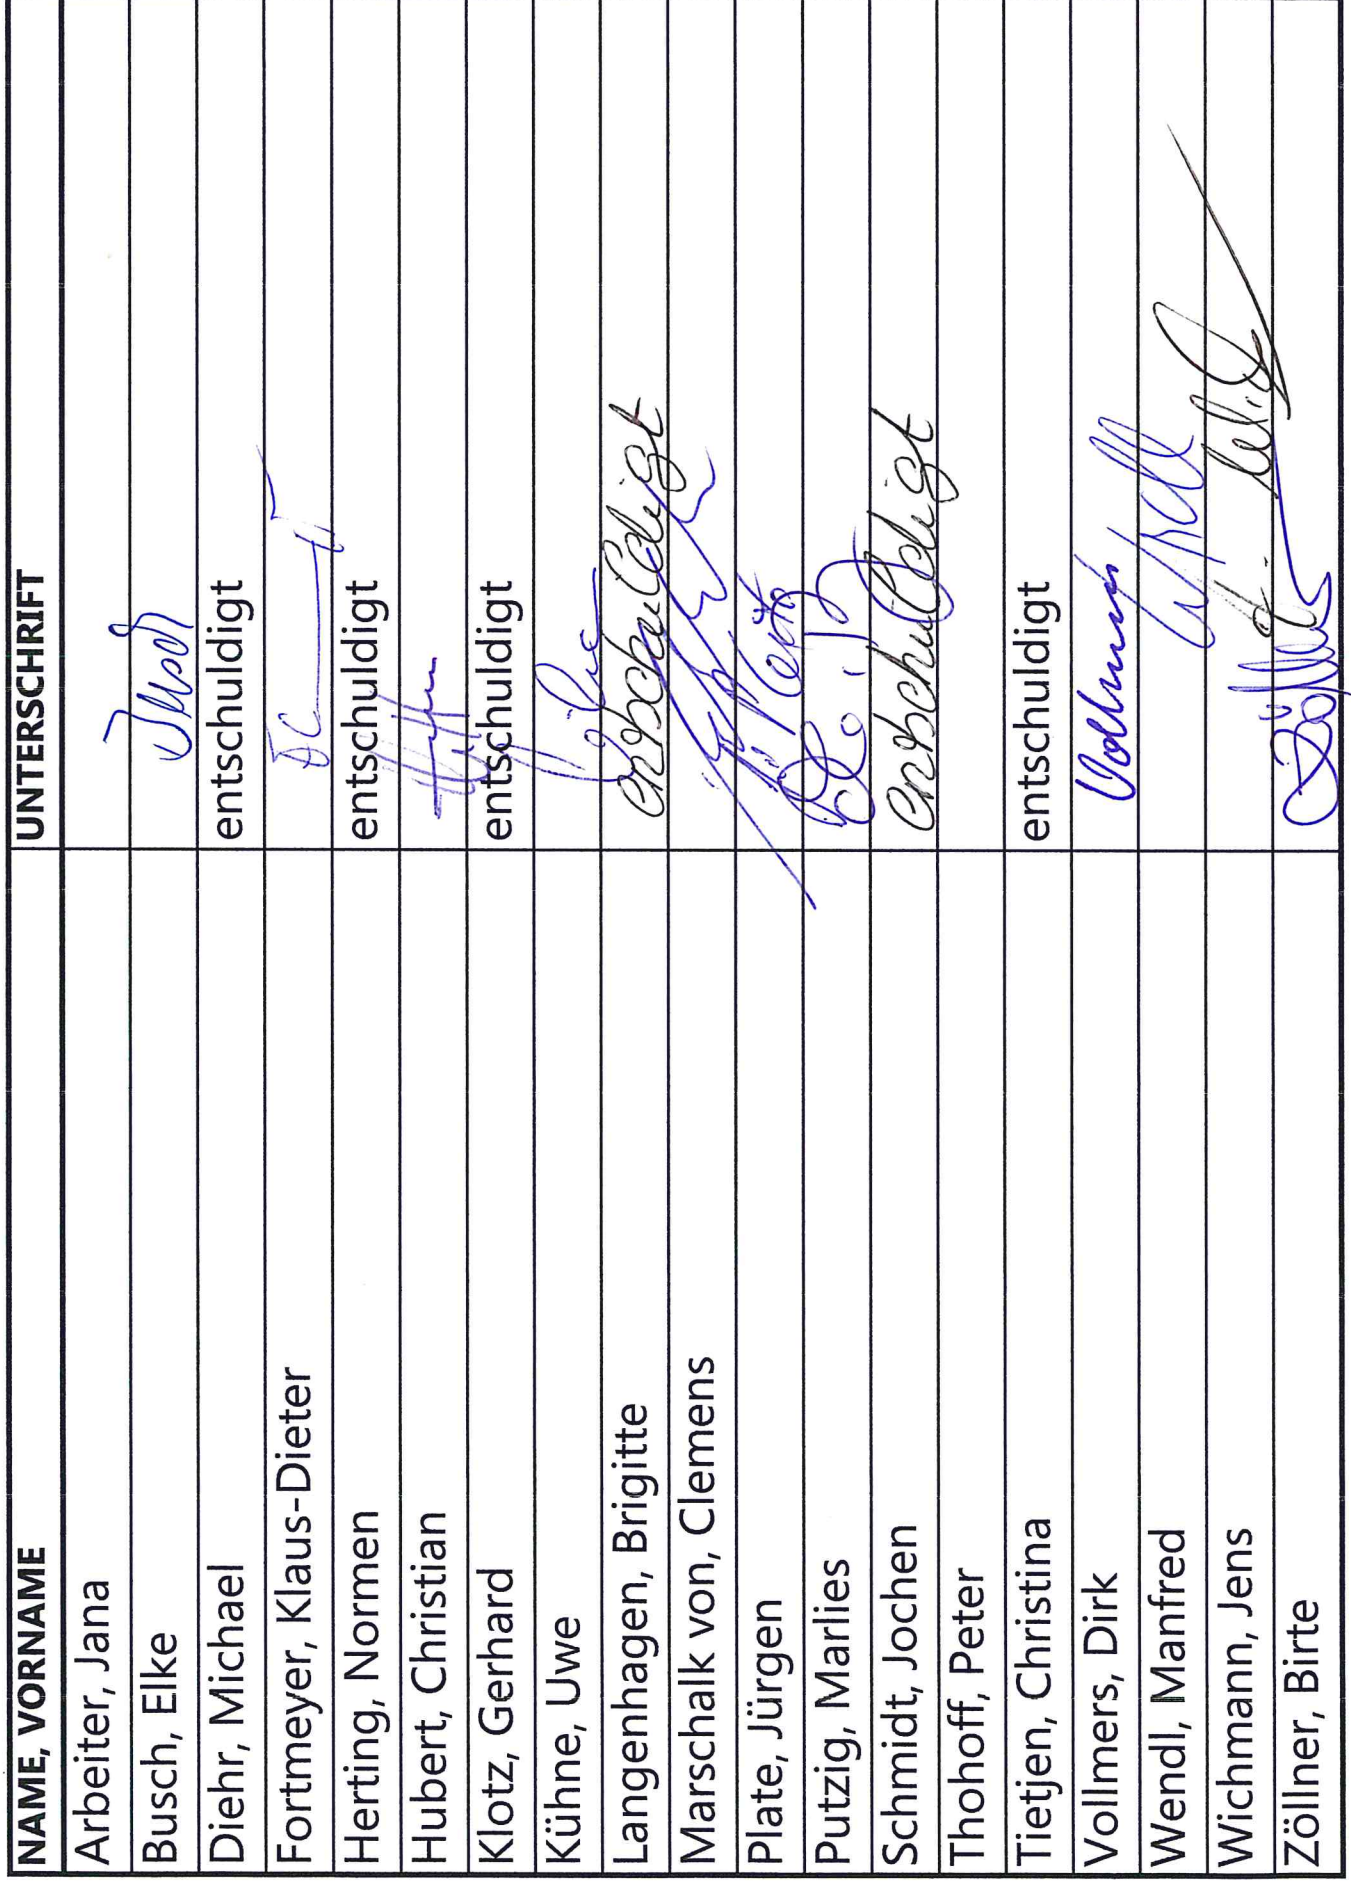 NAME, VORNAME UNTERSCHRIFT
Arbeiter, Jana
Busch, Elke Busch
Diehr, Michael entschuldigt
Fortmeyer, Klaus-Dieter
Herting, Normen entschuldigt
Hubert, Christian
Klotz, Gerhard entschuldigt
Kühne, Uwe
Langenhagen, Brigitte entschuldigt
Marschalk von, Clemens
Plate, Jürgen
Putzig, Marlies
Schmidt, Jochen entschuldigt
Thohoff, Peter
Tietjen, Christina entschuldigt
Vollmers, Dirk Vollmers
Wendl, Manfred
Wichmann, Jens
Zöllner, Birte Zöllner